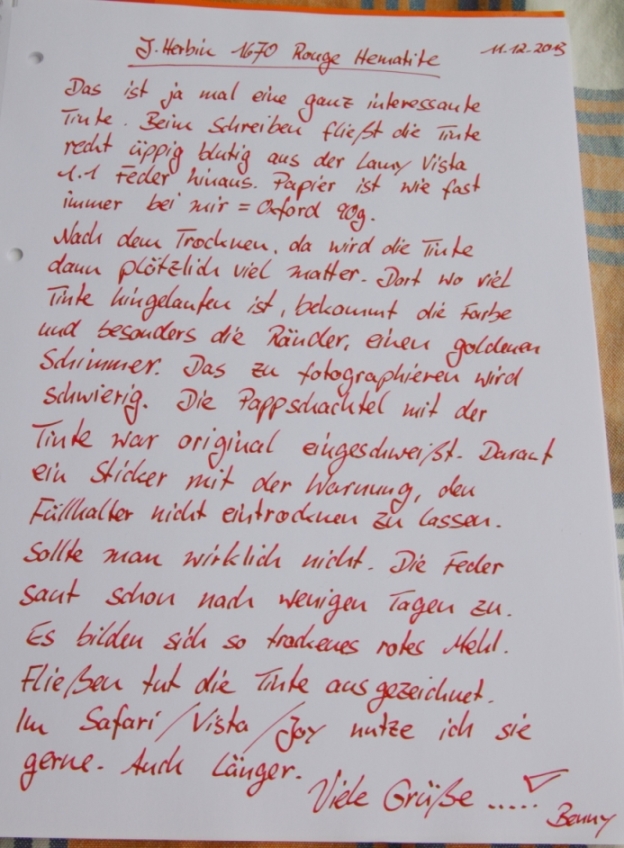 J. Herbin 1670 Rouge Hematite 11.12.2013
Das ist ja mal eine ganz interessante
Tinte. Beim Schreiben fließt die Tinte
recht üppig blutig aus der Lamy Vista
1.1 Feder hinaus. Papier ist wie fast
immer bei mir = Oxford 90g.
Nach dem Trocknen, da wird die Tinte
dann plötzlich viel matter. Dort wo viel
Tinte hingelaufen ist, bekommt die Farbe
und besonders die Ränder, einen goldenen
Schimmer. Das zu fotographieren wird
schwierig. Die Pappschachtel mit der
Tinte war original eingeschweißt. Darauf
ein Sticker mit der Warnung, den
Füllhalter nicht eintrocknen zu lassen.
Sollte man wirklich nicht. Die Feder
saut schon nach wenigen Tagen zu.
Es bilden sich so trockenes rotes Mehl.
Fließen tut die Tinte ausgezeichnet.
Im Safari/Vista/Joy nutze ich sie
gerne. Auch länger.
Viele Grüße .....
Benny